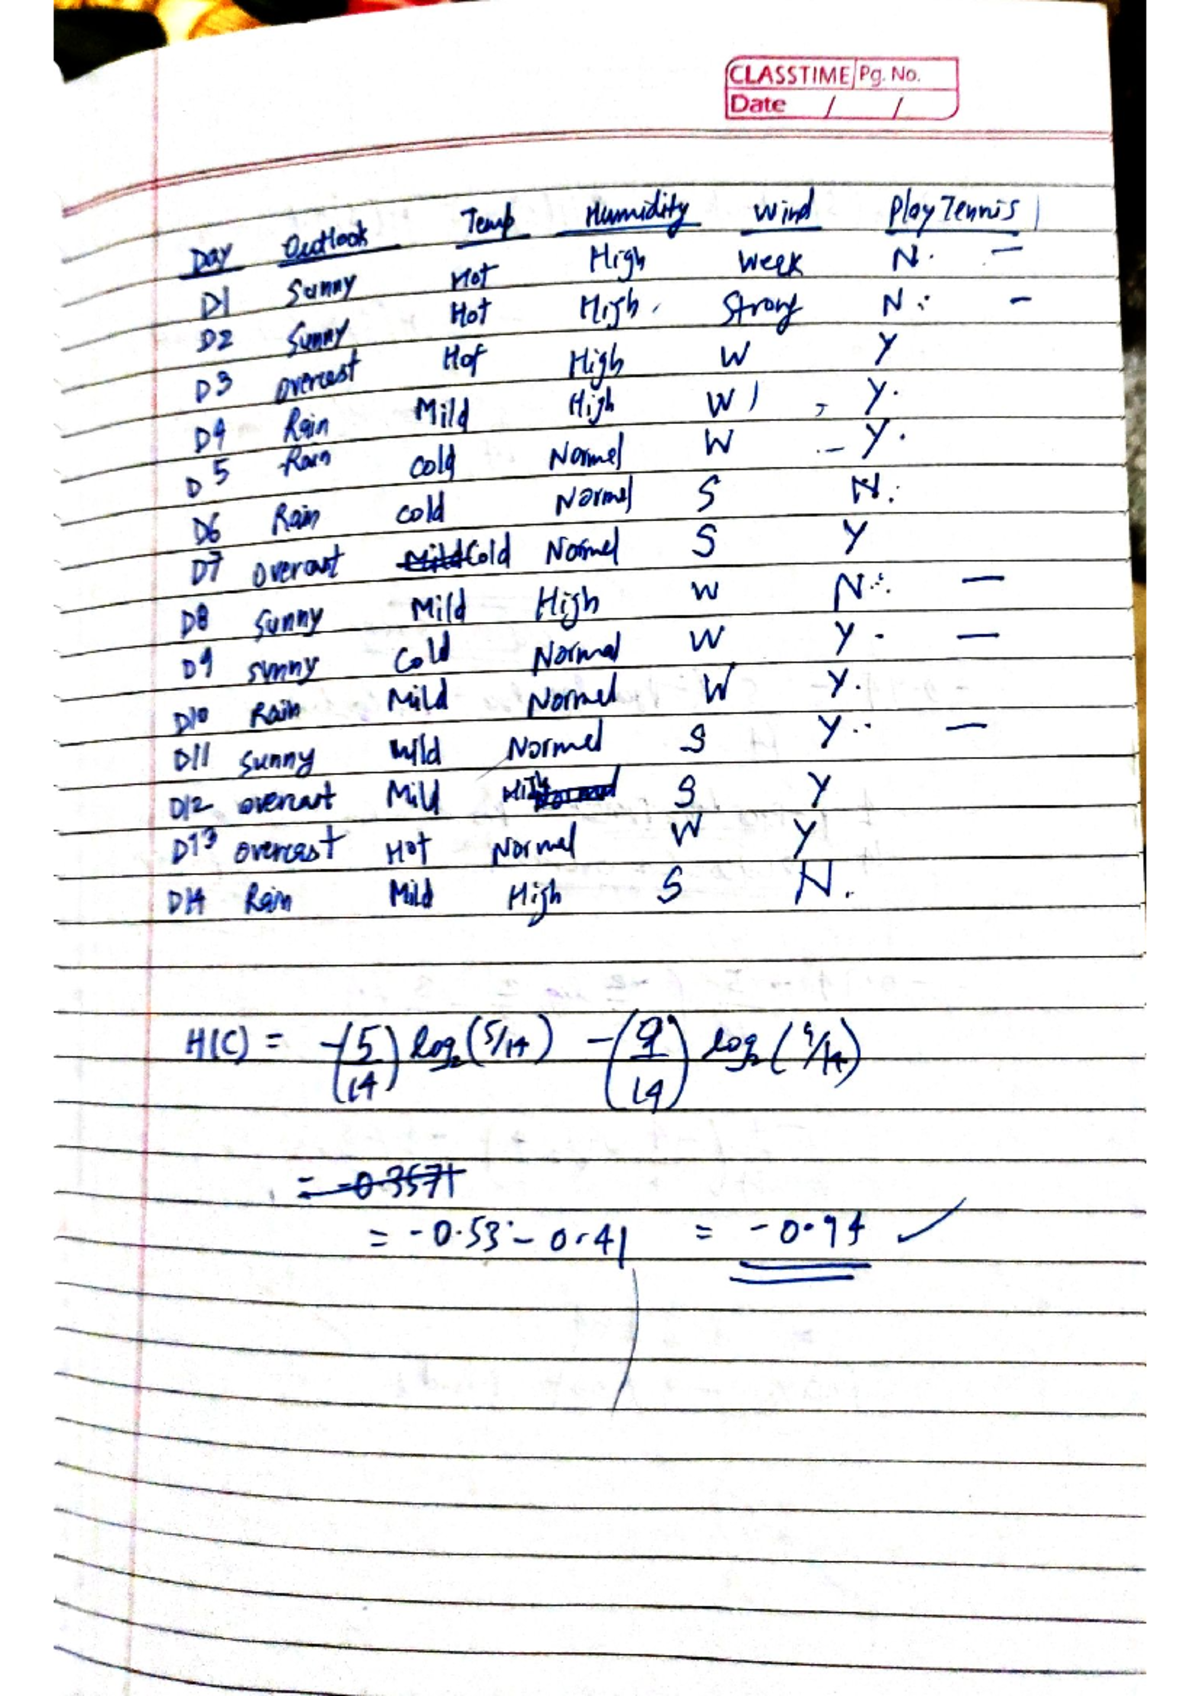 CLASSTIME Pg. No.
Date / /
Day Outlook Temp Humidity Wind Play Tennis
D1 Sunny Hot High Week N. –
D2 Sunny Hot High. Strong N: –
D3 Overcast Hot High W Y
D4 Rain Mild High W ) , Y.
D5 Rain Cold Normel W – Y.
D6 Rain Cold Normel S N:
D7 Overcast Mild Cold Normel S Y
D8 Sunny Mild High W N∴ –
D9 Sunny Cold Normal W Y. –
D10 Rain Mild Normel W Y.
D11 Sunny Mild Normel S Y.. –
D12 overcast Mild High S Y
D13 overcast Hot Normal W Y
D14 Rain Mild High S N.
H(C) = -(5/14) log2 (5/14) - (9/14) log2 (9/14)
= -0.3571
= -0.53 - 0.41 = -0.94 ✓